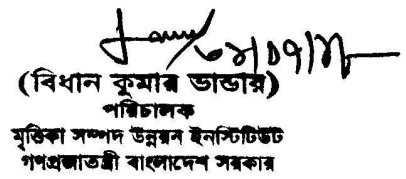 (বিধান কুমার ভান্ডার)
পরিচালক
মৃত্তিকা সম্পদ উন্নয়ন ইনস্টিটিউট
গণপ্রজাতন্ত্রী বাংলাদেশ সরকার